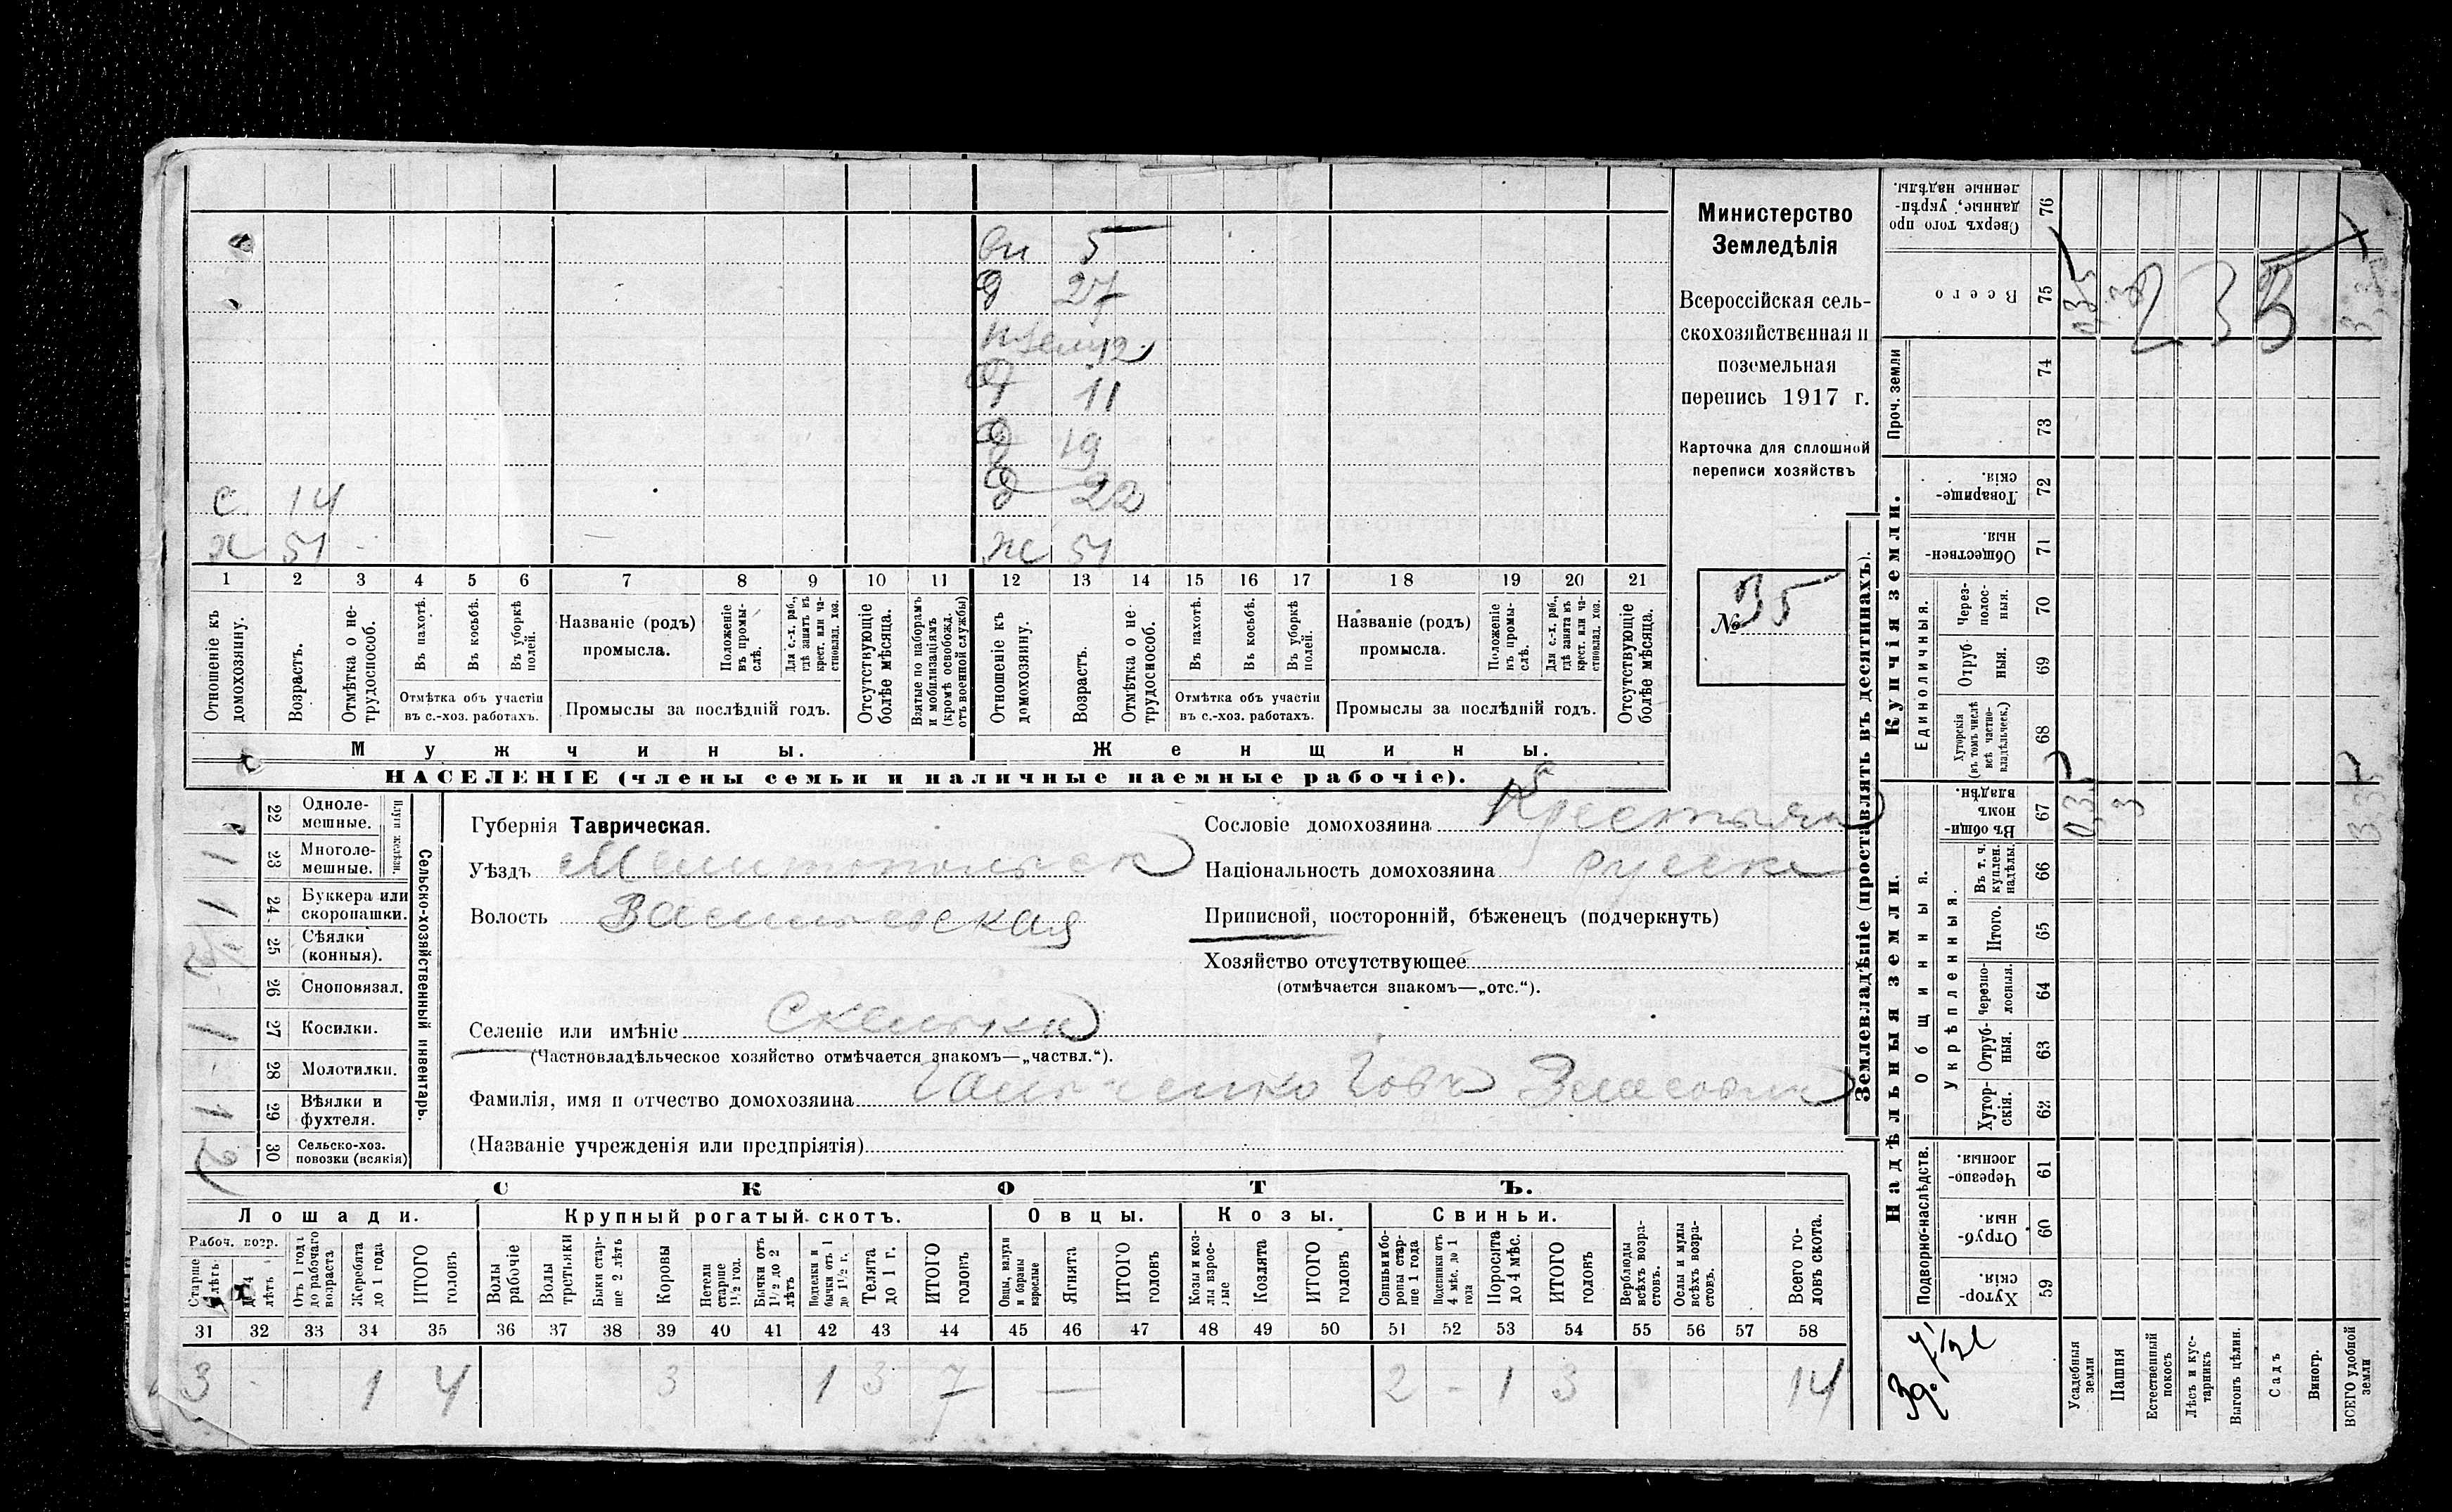 вн 5
д 27
д 11
д 19
с 14 д 22
х 51 ж 51
1 2 3 4 5 6 7 8 9 10 11 12 13 14 15 16 17 18 19 20 21
Отношеніе къ домохозяину.
Возрастъ.
Отмѣтка о нетрудоспособ.
Въ пахотѣ.
Въ косьбѣ.
Въ уборкѣ полей.
Отмѣтка объ участіи въ с.-хоз. работахъ.
Названіе (родъ) промысла.
Положеніе въ промыслѣ.
Для с.-х. раб., гдѣ занятъ въ крест. или частновлад. хоз.
Промыслы за послѣдній годъ.
Отсутствующіе болѣе мѣсяца.
Взятые по наборамъ и мобилизаціямъ (кромѣ освобожд. отъ военной службы)
Отношеніе къ домохозяину.
Возрастъ.
Отмѣтка о нетрудоспособ.
Въ пахотѣ.
Въ косьбѣ.
Въ уборкѣ полей.
Отмѣтка объ участіи въ с.-хоз. работахъ.
Названіе (родъ) промысла.
Положеніе въ промыслѣ.
Для с.-х. раб., гдѣ занята въ крест. или частновлад. хоз.
Промыслы за послѣдній годъ.
Отсутствующіе болѣе мѣсяца.
Мужчины. Женщины.
НАСЕЛЕНІЕ (члены семьи и наличные наемные рабочіе).
Министерство
Земледѣлія
Всероссійская сель-
скохозяйственная и
поземельная
перепись 1917 г.
Карточка для сплошной
переписи хозяйствъ
№ 35
22 Одноле-мешные.
1 23 Многоле-мешные.
Плуги желѣзн.
1 24. Буккера или скоропашки.
25 Сѣялки (конныя).
26 Сноповязал.
1 27 Косилки.
- 28 Молотилки.
1 29 Вѣялки и фухтеля.
2 30 Сельско-хоз. повозки (всякія)
Сельско-хозяйственный инвентарь.
Губернія Таврическая.
Уѣздъ Мелитопольск
Волость Васильевская
Селеніе или имѣніе Скельки
(Частновладѣльческое хозяйство отмѣчается знакомъ—„частвл.“).
Фамилія, имя и отчество домохозяина
(Названіе учрежденія или предпріятія)
Сословіе домохозяина Крестьян
Національность домохозяина русск
Приписной, посторонній, бѣженецъ (подчеркнуть)
Хозяйство отсутствующее
(отмѣчается знакомъ—„отс.“).
СКОТЪ.
Лошади. Крупный рогатый скотъ. Овцы. Козы. Свиньи.
Рабоч. возр.
Отъ 1 года до рабочаго возраста
Жеребята до 1 года
ИТОГО головъ
Волы рабочіе
Волы третьяки
Быки старше 2 лѣтъ
Коровы
Нетели старше 1½ год.
Бычки отъ 1½ до 2 лѣтъ
Подтелки и бычки отъ 1 до 1½ г.
Телята до 1 г.
ИТОГО головъ
Овцы, валухи и бараны взрослые
Ягнята
ИТОГО головъ
Козы и козлы взрослые
Козлята
ИТОГО головъ
Свиньи и боровы старше 1 года
Подсвинки отъ 4 мѣс. до 1 года
Поросята до 4 мѣс.
ИТОГО головъ
Верблюды всѣхъ возрастовъ.
Ослы и мулы всѣхъ возрастовъ.
Всего головъ скота.
31 32 33 34 35 36 37 38 39 40 41 42 43 44 45 46 47 48 49 50 51 52 53 54 55 56 57 58
3 - 1 4 3 1 3 7 — 2 - 1 3 14
Землевладѣніе (проставлять въ десятинахъ).
Надѣльныя земли. Купчія земли. Проч. земли
Подворно-наслѣдств.
Общинныя.
Укрѣпленныя.
Единоличныя.
76 Сверхъ того проданные, укрѣпленные надѣлы.
75 Всего
0,35 3 235 3,35
74
73
72 Товарищескія.
71 Общественныя.
70 Черезполосныя.
69 Отрубныя.
68 Хуторскія (въ томъ числѣ всѣ частновладѣльческ.)
67 Въ общинномъ владѣн.
0,35 3 3,35
66 Въ т. ч. куплен. надѣлы.
65 Итого.
64 Черезполосныя.
63 Отрубныя.
62 Хуторскія.
61 Черезполосныя.
60 Отрубныя.
59 Хуторскія.
Усадебныя земли
Пашня
Естественный покосъ
Лѣсъ и кустарникъ
Выгонъ цѣлин.
Садъ
Виногр.
ВСЕГО удобной земли